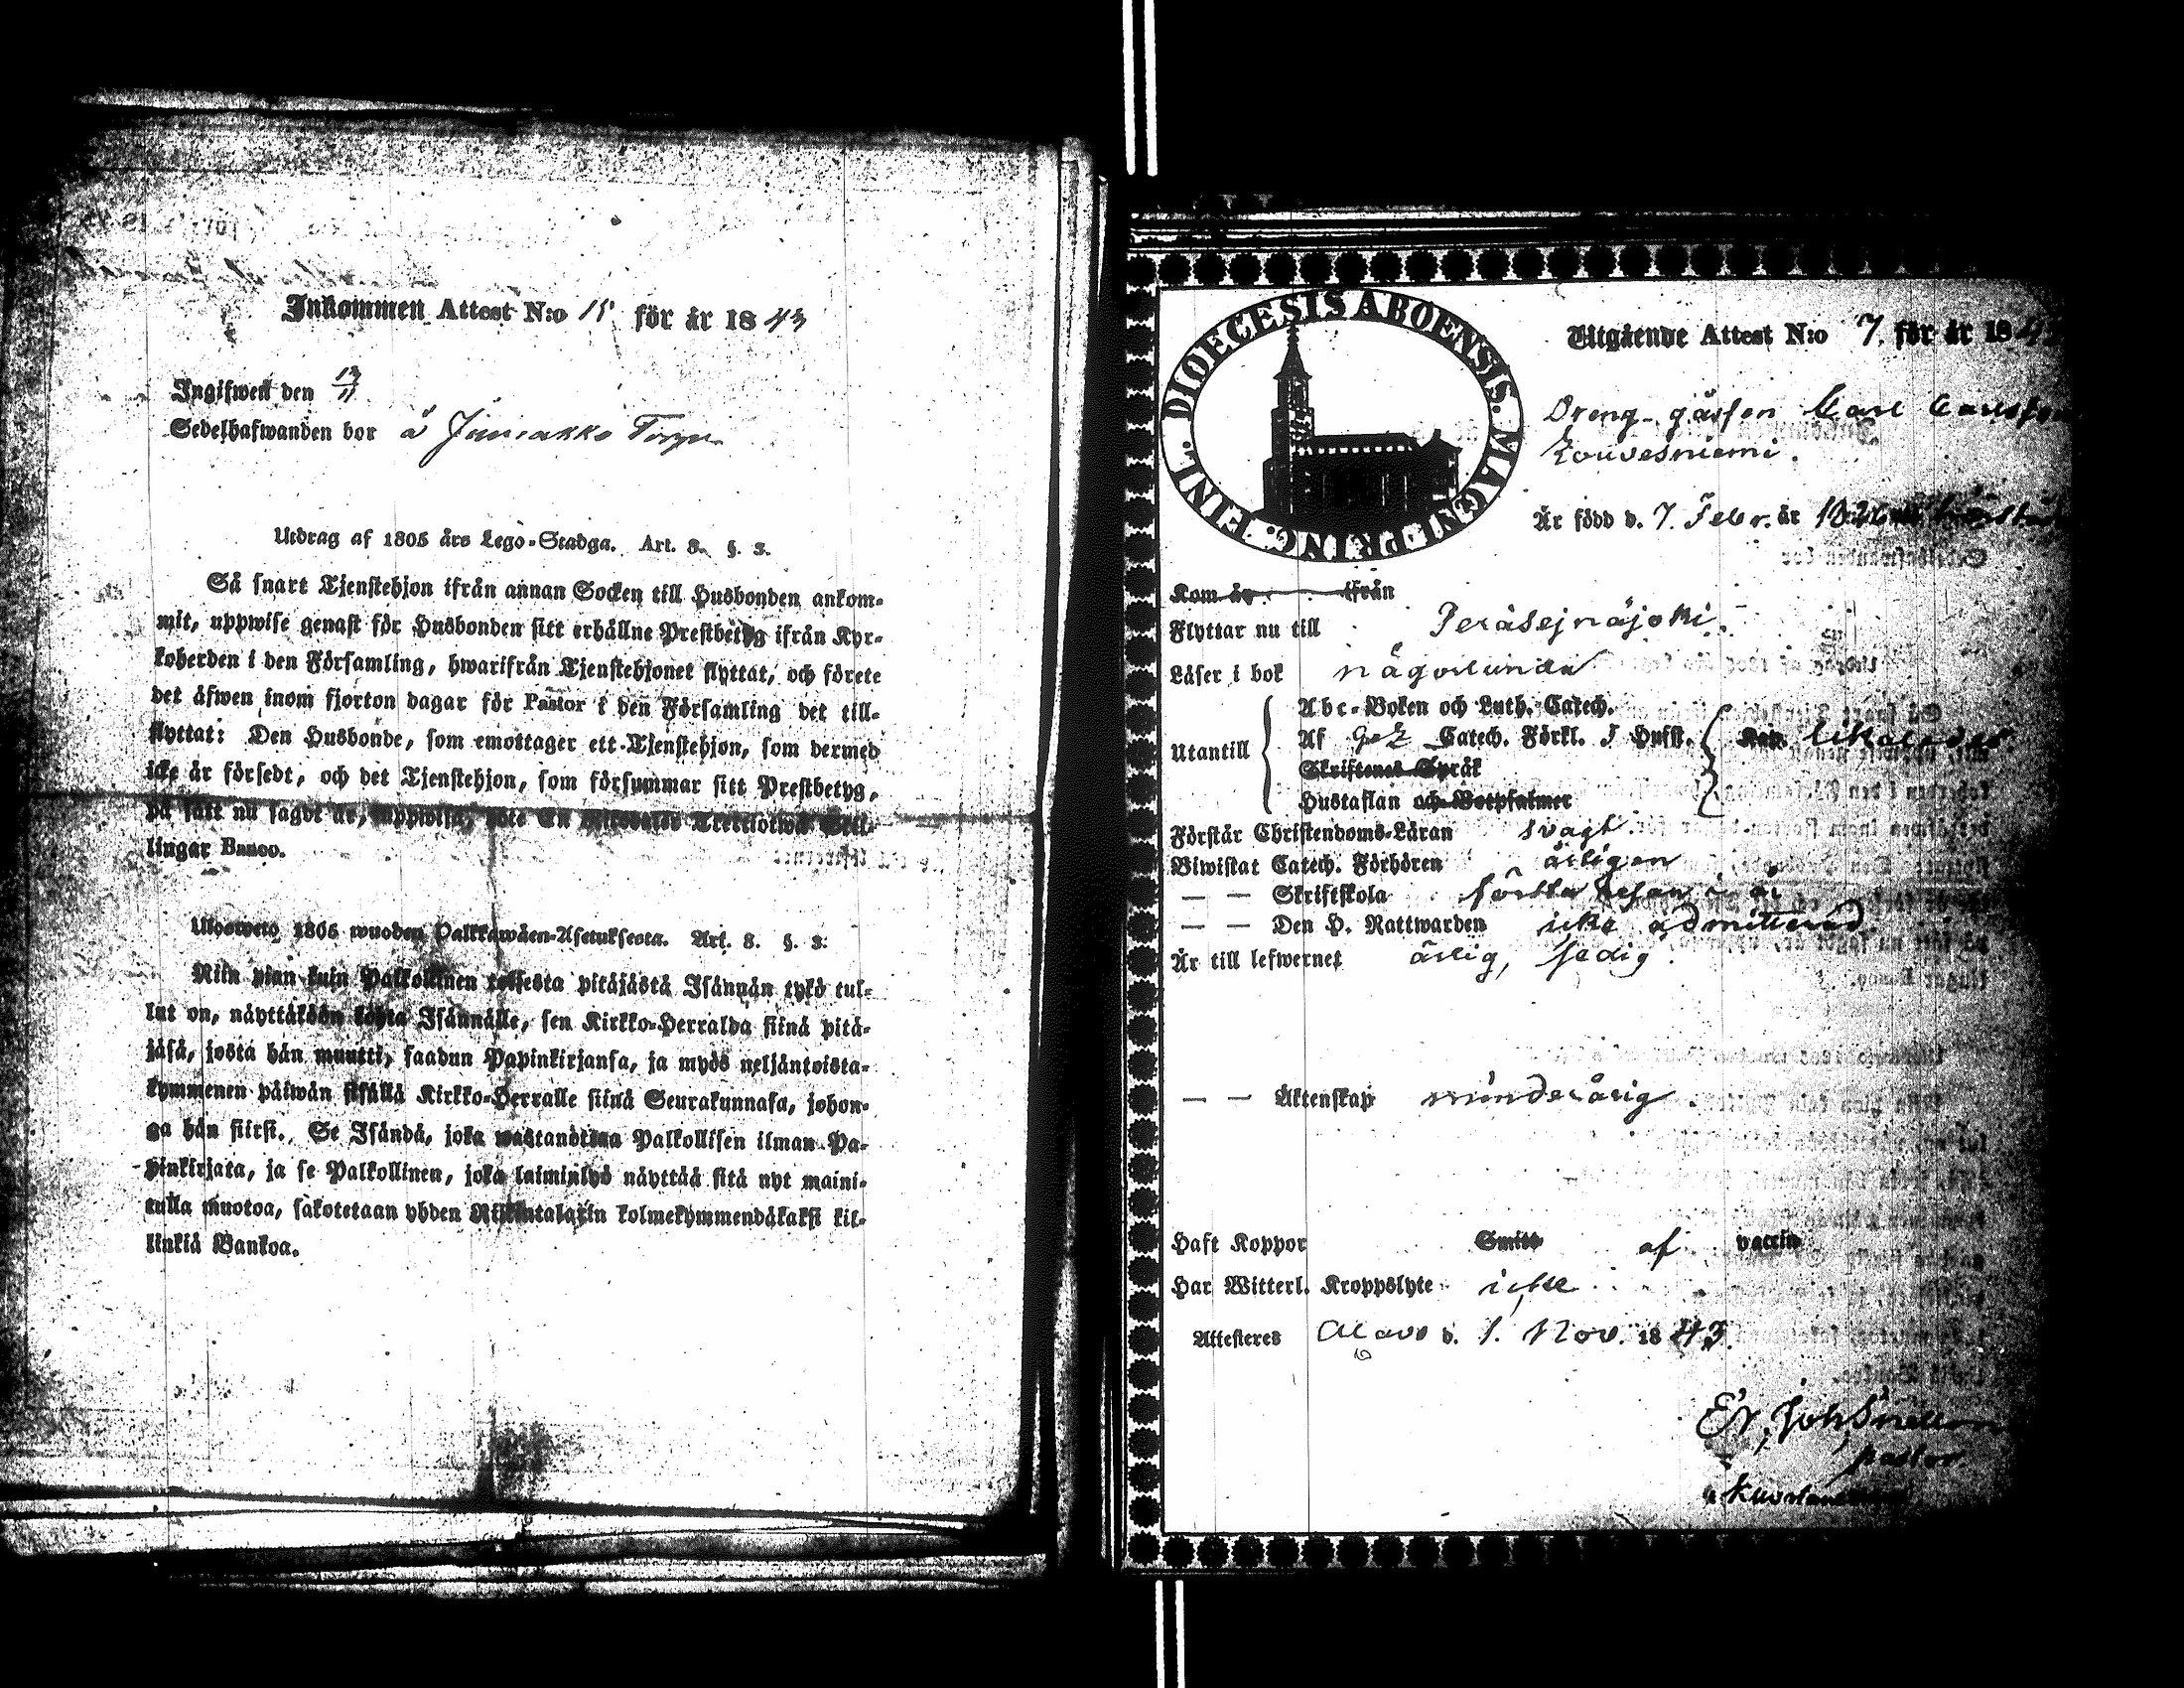 Inkommen Attest N:o 15 för år 1843
Ingifwen den 13/11
Sedelhafwanden bor å Torp
Utdrag af 1805 års Lego-Stadga. Art. 8. §. 3.
Så snart Tjenstehjon ifrån annan Socken till Husbonden ankom-
mit, uppwise genast för Husbonden sitt erhållne Prestbetyg ifrån Kyr-
koherden i den Församling, hwarifrån Tjenstehjonet flyttat, och förete
det äfwen inom fjorton dagar för Pastor i den Församling det till-
flyttat: Den Husbonde, som emottager ett Tjenstehjon, som dermed
icke är försedt, och det Tjenstehjon, som försummar sitt Prestbetyg,
på sätt nu sagdt är, uppwisa, Skil-
lingar Banco.
Ulosweto 1805 wuoden Palkkawäen-Asetuksesta. Art. 8. §. 3.
Niin pian kuin Palkollinen toisesta pitäjästä Isännän tykö tul-
lut on, näyttäköön kohta Isännälle, sen Kirkko-Herralda siinä pitä-
jäsä, josta hän muutti, saadun Papinkirjansa, ja myös neljäntoista-
kymmenen päiwän sisällä Kirkko-Herralle siinä Seurakunnasa, johon-
ga hän siirsi. Se Isändä, joka wastanottaa Palkollisen ilman Pa-
pinkirjata, ja se Palkollinen, joka laiminlyö näyttää sitä nyt maini-
tulla muotoa, sakotetaan yhden Riikintalarin kolmekymmendäkaksi kil-
linkiä Bankoa.
DIOECESIS ABOENSIS. MAGNI PRINC. FINL.
Utgående Attest N:o 7. för år 1843
Dreng-gåssen Carl Carlsson
Kouvesniemi.
Är född d. 7. Febr. år
Kom år ifrån
Flyttar nu till Peräseinäjoki.
Läser i bok någorlunda
Utantill
Abc-Boken och Luth. Catech.
Af Catech. Förkl. J Hufst. Kap. likaledes
Skriftenes Språk
Hustaflan och Botpsalmer
Förstår Christendoms-Läran svagt.
Biwistat Catech. Förhören årligen
— — Skriftskola första resan i år
— — Den H. Nattwarden icke admitterad
Är till lefwernet ärlig, sedig.
— — Äktenskap minderårig.
Haft Koppor Smitt af vaccin
Har Witterl. Kroppslyte icke
Attesteres Alavo d. 1. Nov. 1843.
Er. Joh. Snellman
pastor.
i Kuortane